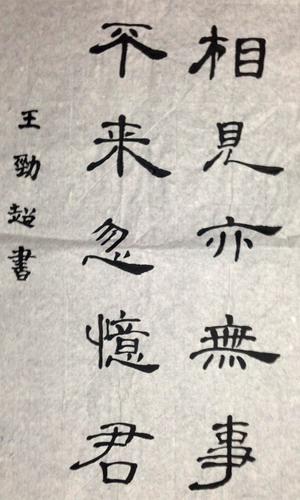 相見亦無事
平来忽憶君
王勁超書